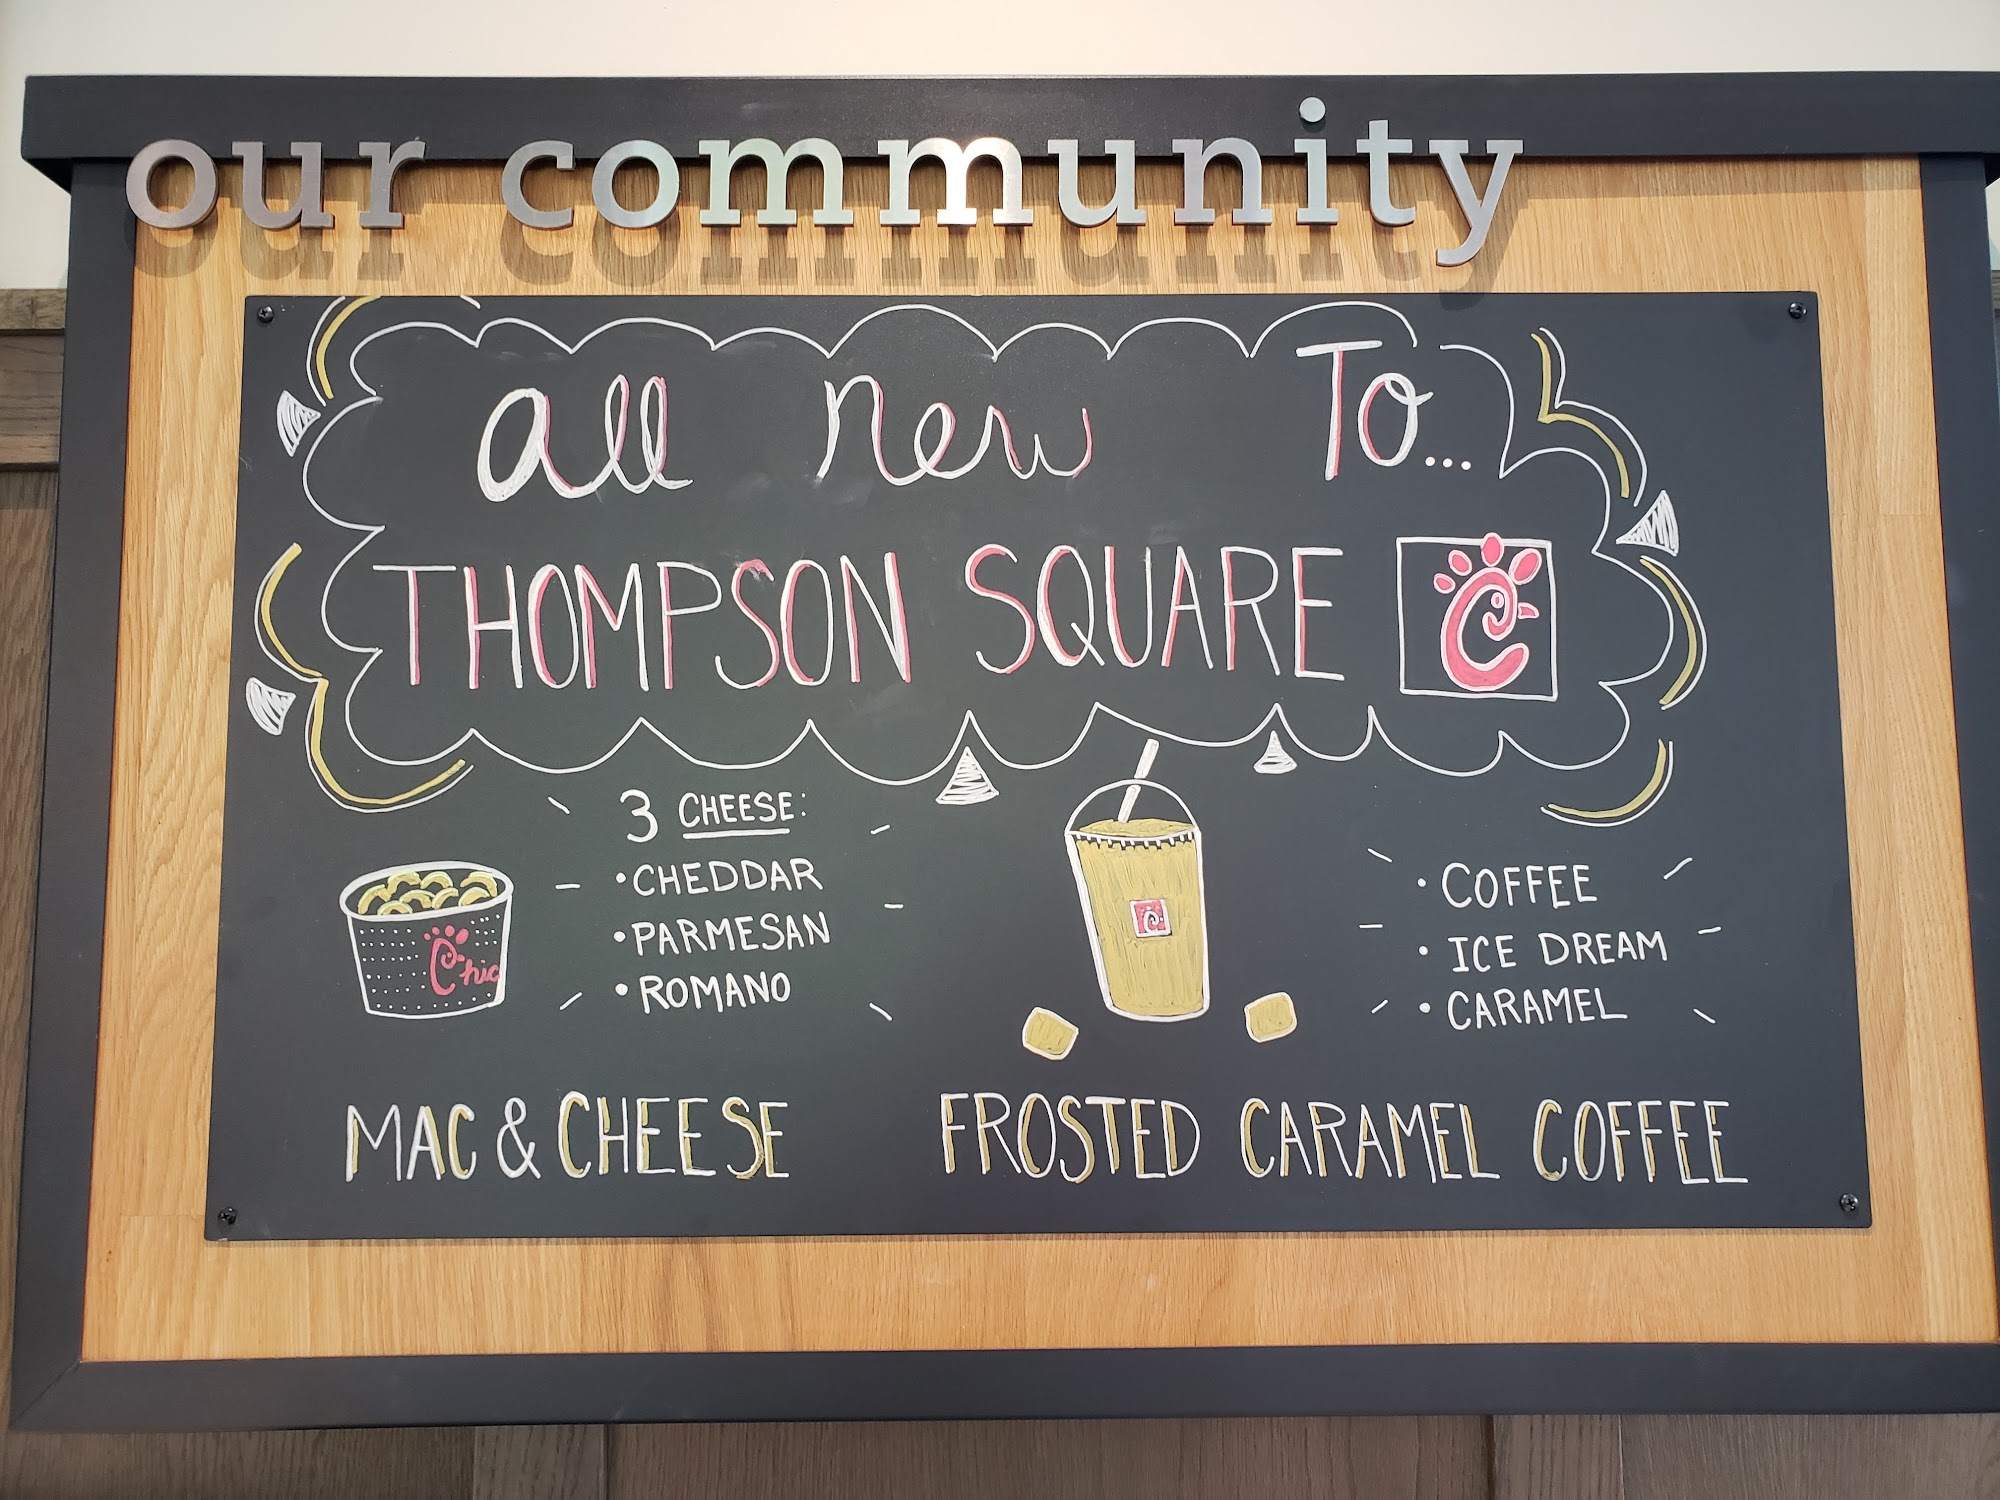 our community
all new To...
THOMPSON SQUARE
3 CHEESE:
• CHEDDAR
• PARMESAN
• ROMANO
Chic
MAC & CHEESE
• COFFEE
• ICE DREAM
• CARAMEL
FROSTED CARAMEL COFFEE